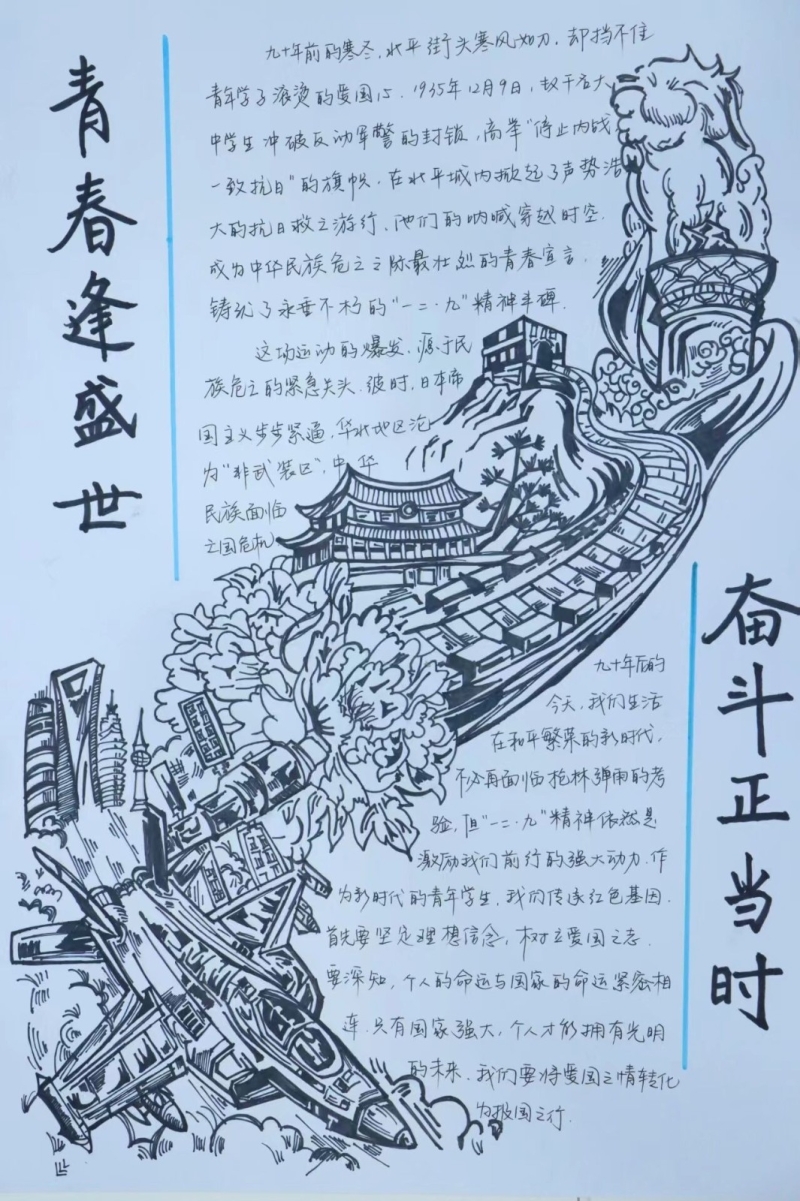 青春逢盛世
九十年前的寒冬,北平街头寒风如刀,却挡不住
青年学子滚烫的爱国心.1935年12月9日,数千名大
中学生冲破反动军警的封锁,高举“停止内战,
一致抗日”的旗帜.在北平城内掀起了声势浩
大的抗日救亡游行,他们的呐喊穿越时空.
成为中华民族危亡之际最壮烈的青春宣言,
铸就了永垂不朽的“一二·九”精神丰碑.
这场运动的爆发,源于民
族危亡的紧急关头.彼时,日本帝
国主义步步紧逼,华北地区沦
为“非武装区”,中华
民族面临
亡国危机
奋斗正当时
九十年后的
今天,我们生活
在和平繁荣的新时代,
不必再面临枪林弹雨的考
验,但“一二·九”精神依然是
激励我们前行的强大动力.作
为新时代的青年学生,我们传承红色基因.
首先要坚定理想信念,树立爱国之志.
要深知,个人的命运与国家的命运紧密相
连.只有国家强大,个人才能拥有光明
的未来.我们要将爱国之情转化
为报国之行.